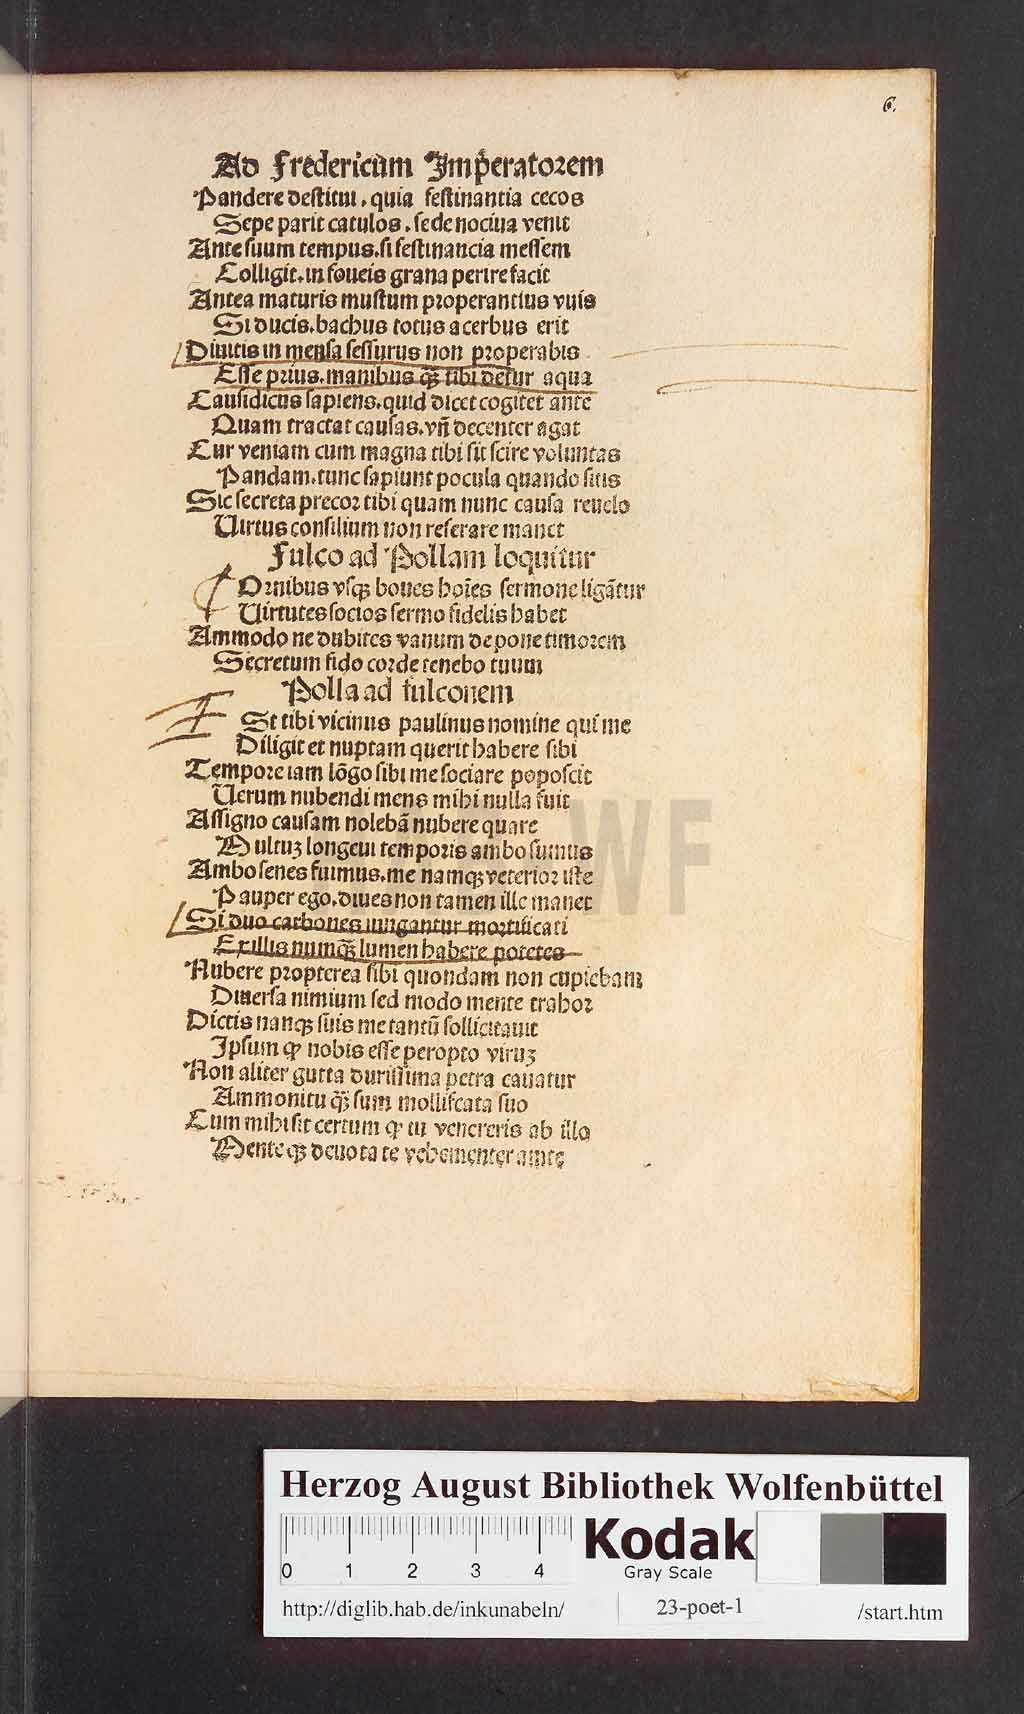 6.
Ad Fredericum Imperatorem
Pandere destitui. quia festinantia cecos
Sepe parit catulos. sede nociua venit
Ante suum tempus. si festinancia messem
Colligit. in foueis grana perire facit
Antea maturis mustum properantius vuis
Si ducis. bachus totus acerbus erit
Diuitis in mensa sessurus non properabis
Esse prius. manibus q̃ tibi detur aqua
Causidicus sapiens. quid dicet cogitet ante
Quam tractat causas. vñ decenter agat
Cur veniam cum magna tibi sit scire voluntas
Pandam. tunc sapiunt pocula quando sitis
Sic secreta precor tibi quam nunc causa reuelo
Uirtus consilium non reserare manet
Fulco ad Pollam loquitur
Ornibus vsqȝ boues hoīes sermone ligãtur
Uirtutes socios sermo fidelis habet
Ammodo ne dubites vanum depone timorem
Secretum fido corde tenebo tuum
Polla ad fulconem
St tibi vicinus paulinus nomine qui me
Diligit et nuptam querit habere sibi
Tempore iam lõgo sibi me sociare poposcit
Uerum nubendi mens mihi nulla fuit
Assigno causam nolebã nubere quare
Multuȝ longeui temporis ambo sumus
Ambo senes fuimus. me namqȝ veterior iste
Pauper ego. diues non tamen ille manet
Si duo carbones iungantur mortificati
Ex illis numq̃ lumen habere potetes
Nubere propterea sibi quondam non cupiebam
Diuersa nimium sed modo mente trahor
Dictis nanqȝ suis me tantũ sollicitauit
Ipsum qꝫ nobis esse peropto viruȝ
Non aliter gutta durissima petra cauatur
Ammonitu q̃ sum mollifcata suo
Cum mihi sit certum qꝫ tu venereris ab illo
Mente qȝ deuota te vehementer amte
HAB WF
Herzog August Bibliothek Wolfenbüttel
0 1 2 3 4
Kodak
Gray Scale
http://diglib.hab.de/inkunabeln/
23-poet-1
/start.htm